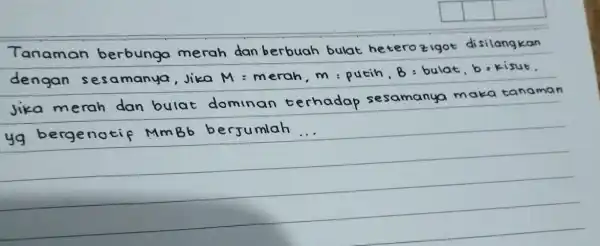 Tanaman berbunga merah dan berbuah bulat heterozigot disilangkan
dengan sesamanya, Jika M = merah, m : putih, B : bulat, b = kisut.
Jika merah dan bulat dominan terhadap sesamanya maka tanaman
yg bergenotip MmBb berjumlah ...